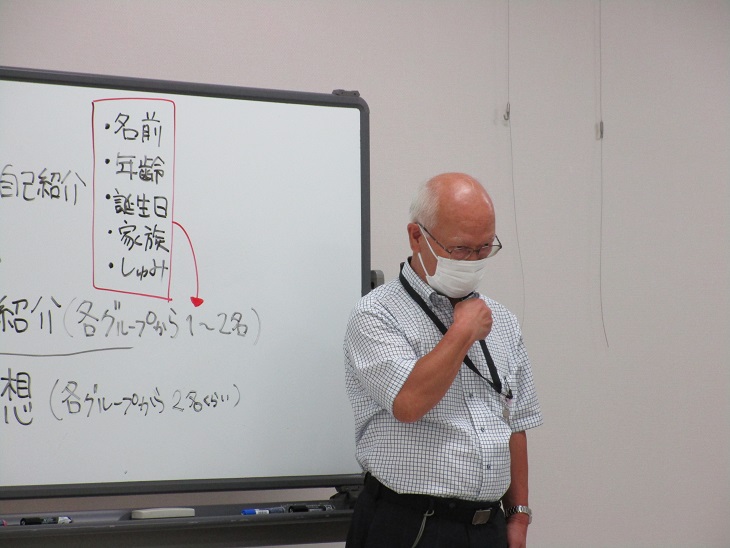 ・名前
・年齢
自己紹介
・誕生日
・家族
・しゅみ
紹介(各グループから1〜2名)
想(各グループから2名くらい)